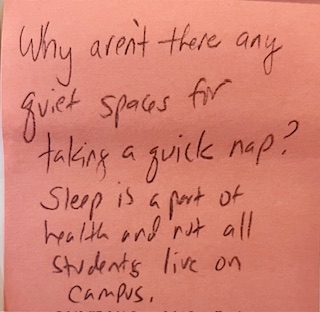 Why aren't there any
quiet spaces for
taking a quick nap?
Sleep is a part of
health and not all
students live on
campus.